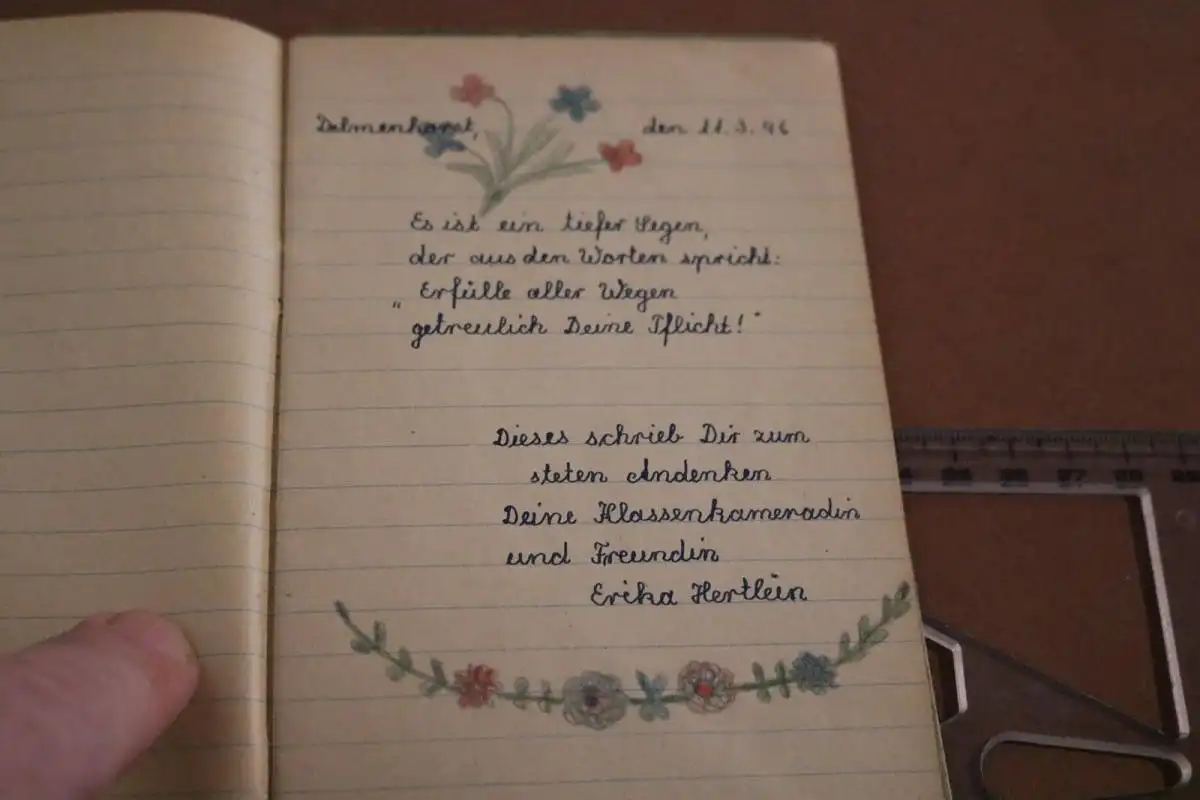 Delmenhorst, den 11.3.46
Es ist ein tiefer Segen,
der aus den Worten spricht:
„Erfülle aller Wegen
getreulich Deine Pflicht!"
Dieses schrieb Dir zum
steten Andenken
Deine Klassenkameradin
und Freundin
Erika Hertlein